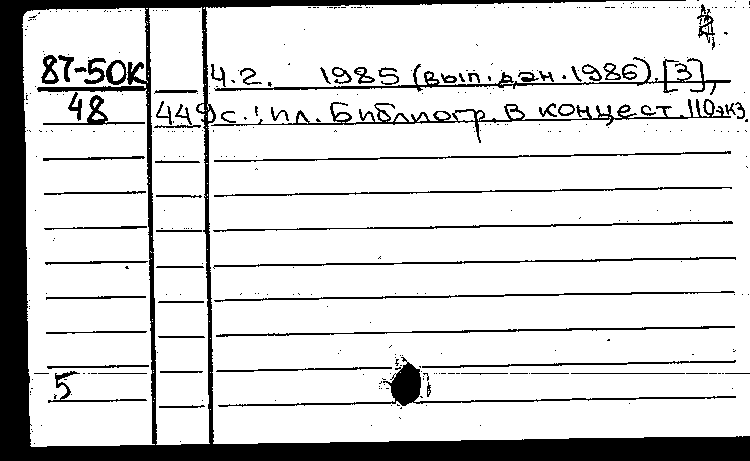 87-50К Ч.2. 1985 (вып. дан. 1986). [3],
48 449 с.: ил. Библиогр. в конце ст. 110экз.
5